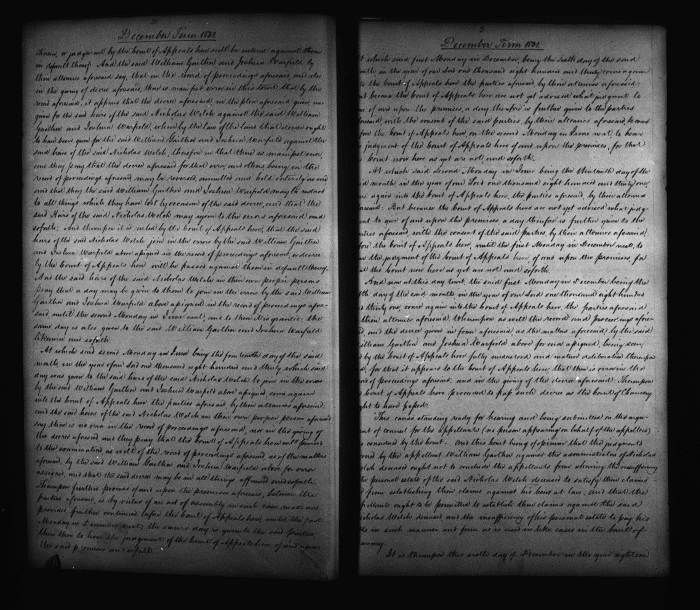 December Term 1831
them, a judgment by the Court of Appeals here will be entered against them
in default thereof. And the said William Gaither and Joshua Warfield by
their attornies aforesaid say, that in the record of proceedings aforesaid, and also
in the giving of decree aforesaid, there is manifest error in this to wit that by the
record aforesaid, it appears that the decree aforesaid, in the plea aforesaid given was
given for the said heirs of the said Nicholas Welch against the said William
Gaither and Joshua Warfield, when by the law of the land that decree ought
to have been given for the said William Gaither and Joshua Warfield against the
said heirs of the said Nicholas Welch, therefore in that there is manifest error,
and they pray that the decree aforesaid for that error and others being in the
record of proceedings aforesaid, may be reversed, annulled and held entirely as void
and that they the said William Gaither and Joshua Warfield may be restored
to all things which they have lost by occasion of the said decree, and that the
said heirs of the said Nicholas Welch may rejoin to the errors aforesaid and
soforth. And thereupon it is ruled by the Court of Appeals here, that the said
heirs of the said Nicholas Welch join in the errors by the said William Gaither
and Joshua Warfield above assigned in the record of proceedings aforesaid, or decree
by the Court of Appeals here will be passed against them in default thereof.
And the said heirs of the said Nicholas Welch in their own proper persons
pray that a day may be given to them to join in the errors by the said William
Gaither and Joshua Warfield above assigned in the record of proceedings afore-
said until the second Monday in June next, and to them it is granted: the
same day is also given to the said William Gaither and Joshua Warfield
likewise and soforth.
At which said second Monday in June being the fourteenth day of the said
month in the year of our Lord one thousand eight hundred and thirty which said
day was given to the said heirs of the said Nicholas Welch to join in the errors
by the said William Gaither and Joshua Warfield above assigned comes again
into the Court of Appeals here the parties aforesaid, by their attornies aforesaid,
and the said heirs of the said Nicholas Welch in their own proper persons aforesaid
say there is no error in the record of proceedings aforesaid, nor in the giving of
the decree aforesaid and they pray that the Court of Appeals here will proceed
to the examination as well of the record of proceedings aforesaid as of the matters
aforesaid, by the said William Gaither and Joshua Warfield above for error
assigned, and that the said decree may be in all things affirmed and soforth.
Thereupon further process of and upon the premises aforesaid, between the
parties aforesaid is by virtue of an act of assembly in such case made and
provided further continued before the Court of Appeals here until the first
Monday in December next, the same day is given to the said parties
then there to hear the judgment of the Court of Appeals here of and upon
the said premises and soforth.
December Term 1831
At which said first Monday in December, being the sixth day of the said
month in the year of our Lord one thousand eight hundred and thirty comes again
to the Court of Appeals here the parties aforesaid by their attornies aforesaid
but because the Court of Appeals here are not yet advised what judgment to
give of and upon the premises, a day therefor is further given to the parties
aforesaid, with the consent of the said parties, by their attornies aforesaid, to come
before the Court of Appeals here on the second Monday in June next, to hear
the judgment of the Court of Appeals here of and upon the premises, for that
the Court now here as yet are not and soforth.
At which said Second Monday in June being the thirteenth day of the
said month in the year of our Lord one thousand eight hundred and thirty one,
comes again into the Court of Appeals here, the parties aforesaid, by their attornies
aforesaid: But because the Court of Appeals here are not yet advised what judg-
ment to give of and upon the premises a day therefor is further given to the
parties aforesaid, with the consent of the said parties by their attornies aforesaid
before the Court of Appeals here, until the first Monday in December next, to
hear the judgment of the Court of Appeals here, of and upon the premises for
that the Court now here as yet are not and soforth.
And now at this day to wit the said first Monday in December being the
fifth day of the said month in the year of our Lord one thousand eight hundred
and thirty one, comes again into the Court of Appeals here the parties aforesaid
by their attornies aforesaid, Whereupon as well the record and proceedings afore-
said and the decree given in form aforesaid as the matters aforesaid, by the said
William Gaither and Joshua Warfield above for error assigned, being seen
and by the Court of Appeals here fully understood and mature deliberation thereupon
had, for that it appears to the Court of Appeals here, that there is error in the
record of proceedings aforesaid, and in the giving of the decree aforesaid, Thereupon
the Court of Appeals here proceeded to pass such decree as the Court of Chancery
ought to have passed.
This cause standing ready for hearing and being submitted on the argu-
ment of counsel for the appellants (no person appearing on behalf of the appellees)
was considered by the Court. And this Court being of opinion that the judgments
obtained by the appellant William Gaither against the administrators of Nicholas
Welch deceased ought not to conclude the appellants from shewing the insufficiency
of the personal estate of the said Nicholas Welch deceased to satisfy their claims
or from establishing their claims against his heirs at law, and that the
appellants ought to be permitted to establish their claims against the said
Nicholas Welch deceased and the insufficiency of his personal estate to pay his
debts in such manner and form as is used in like cases in the Court of
Chancery.
It is thereupon this sixth day of December in the year eighteen